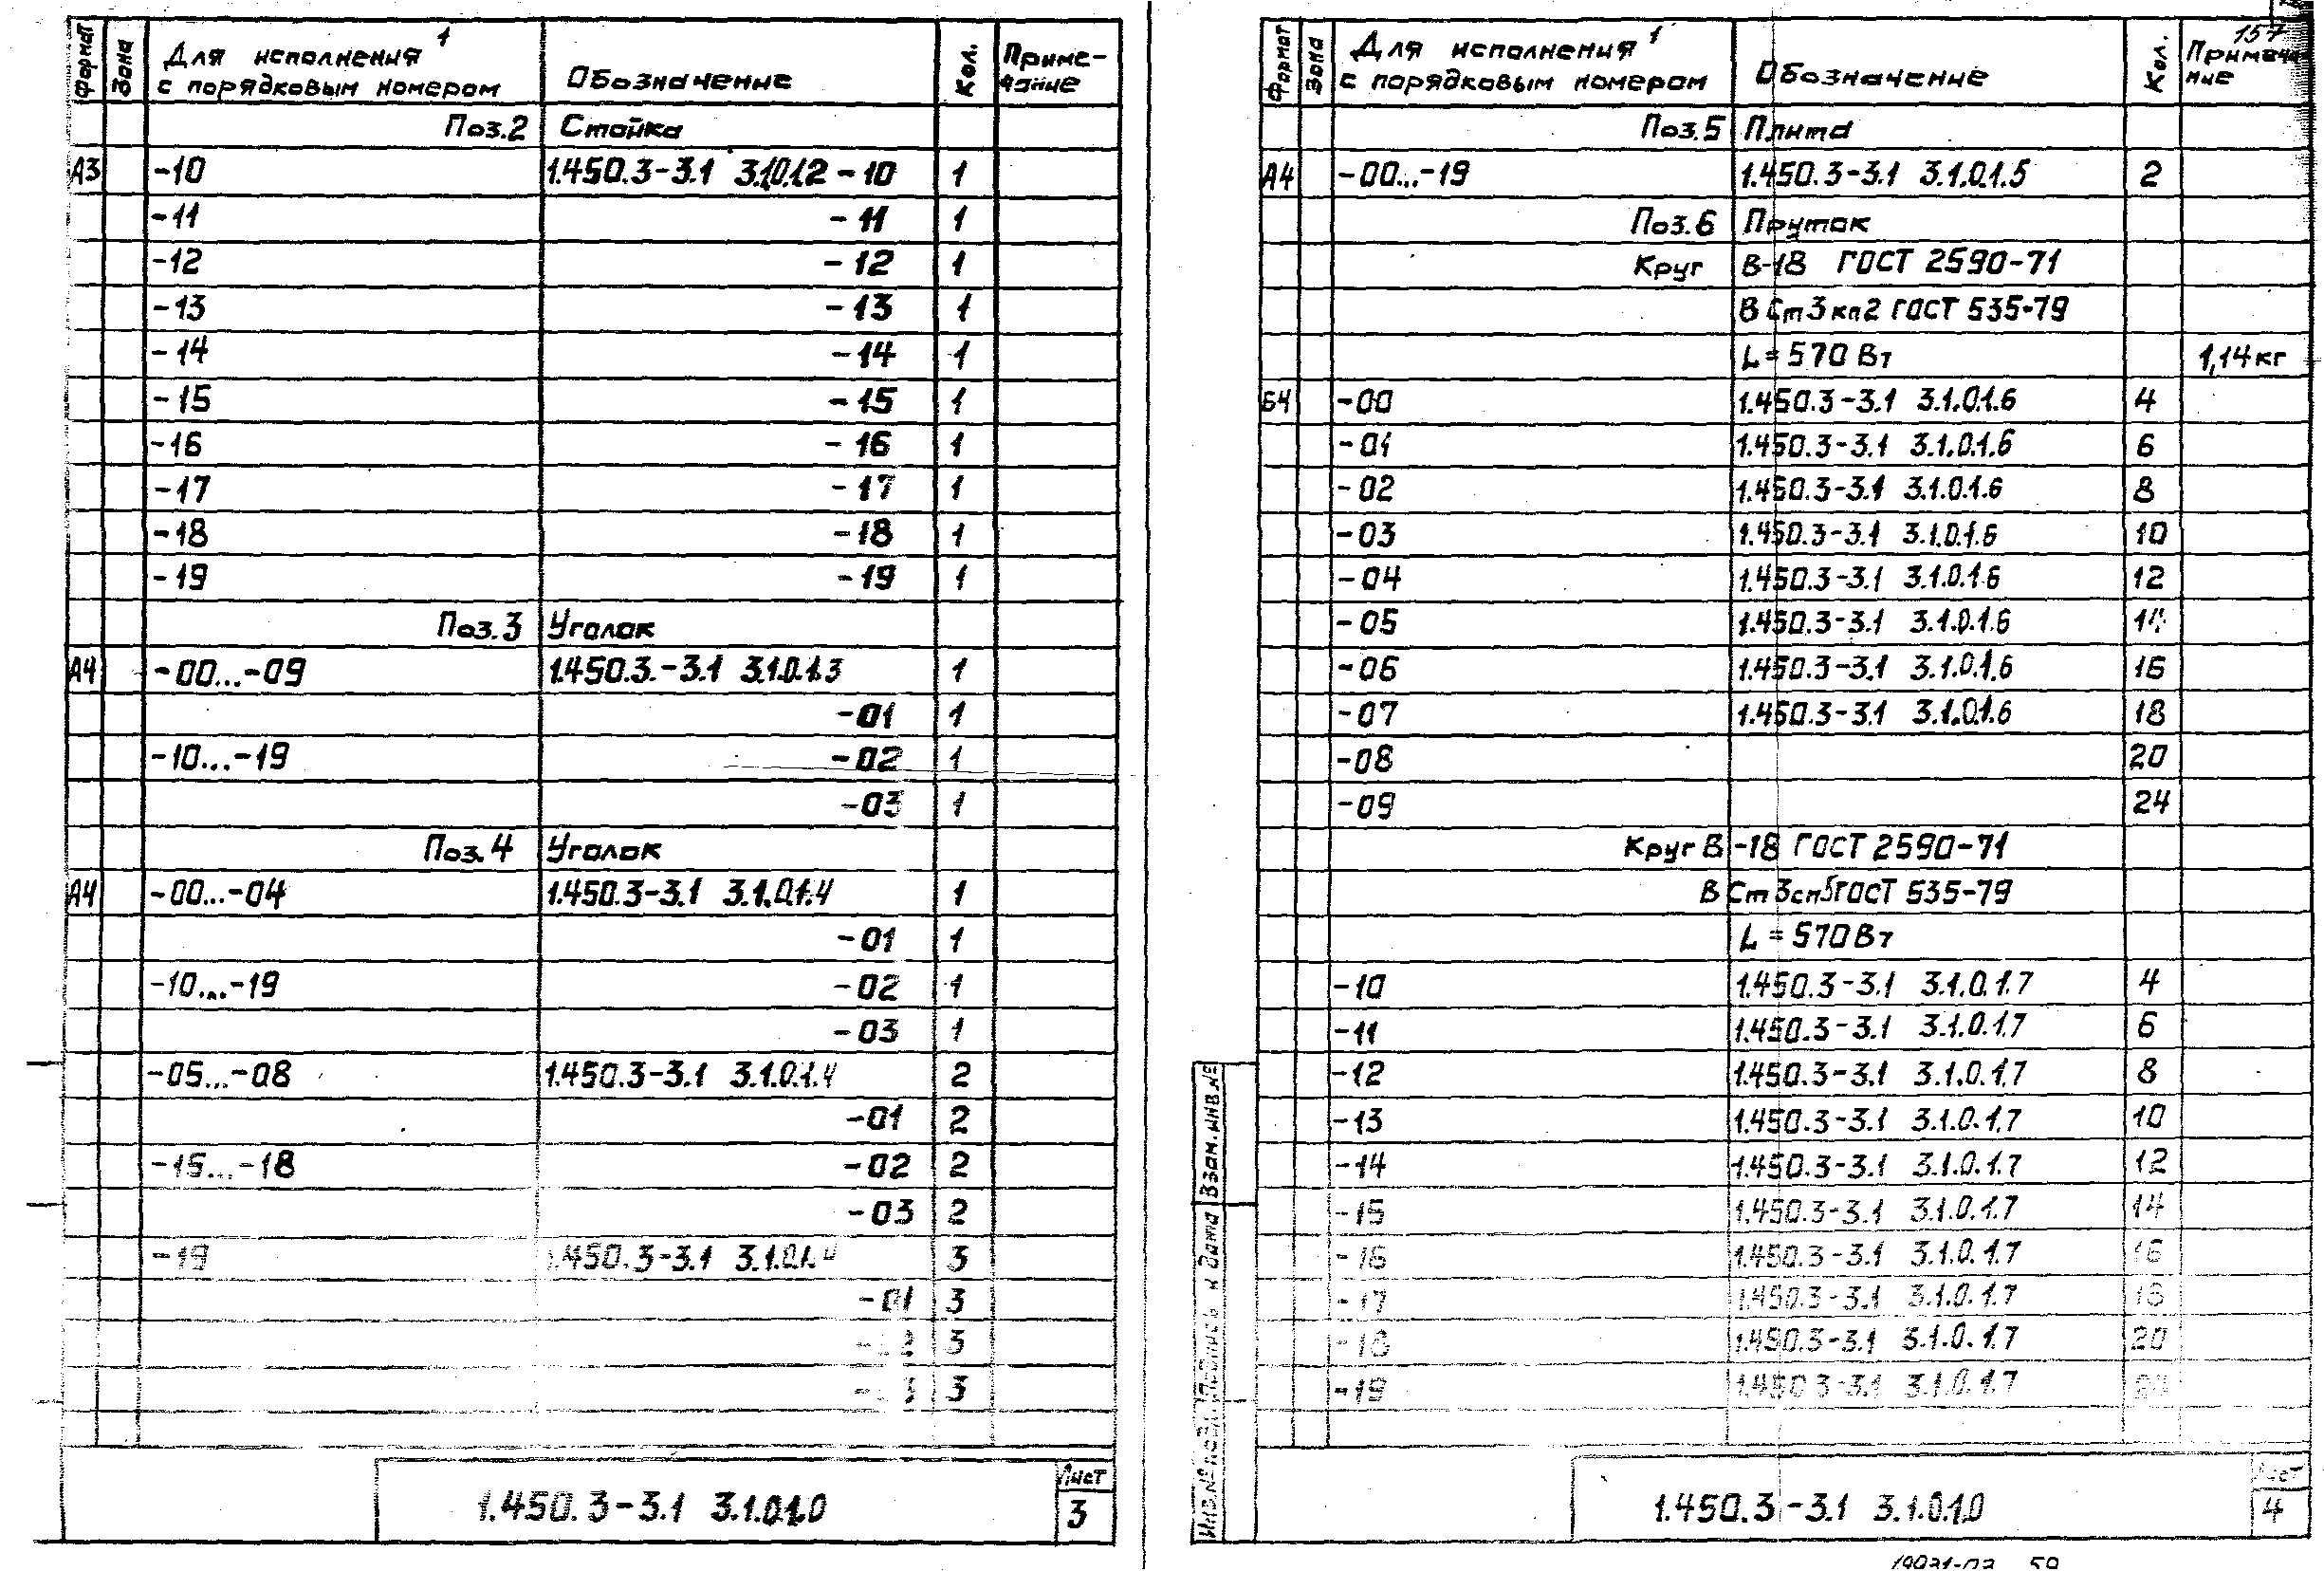 Формат Зона Для исполнения 1 с порядковым номером Обозначение Кол. Приме-
чание
Поз.2 Стойка
А3 -10 1.450.3-3.1 3.1.0.1.2-10 1
-11 -11 1
-12 -12 1
-13 -13 1
-14 -14 1
-15 -15 1
-16 -16 1
-17 -17 1
-18 -18 1
-19 -19 1
Поз.3 Уголок
А4 -00...-09 1.450.3.-3.1 3.1.0.1.3 1
-01 1
-10...-19 -02 1
-03 1
Поз.4 Уголок
А4 -00...-04 1.450.3-3.1 3.1.0.1.4 1
-01 1
-10...-19 -02 1
-03 1
-05...-08 1.450.3-3.1 3.1.0.1.4 2
-01 2
-15...-18 -02 2
-03 2
-19 1.450.3-3.1 3.1.0.1.4 3
-01 3
3
3
1.450.3-3.1 3.1.0.1.0
Лист
3
157
Формат Зона Для исполнения 1 с порядковым номером Обозначение Кол. Примеча-
ние
Поз.5 Плита
А4 -00...-19 1.450.3-3.1 3.1.0.1.5 2
Поз.6 Пруток
Круг В-18 ГОСТ 2590-71
ВСт3кп2 ГОСТ 535-79
L=570 Вт 1,14кг
Б4 -00 1.450.3-3.1 3.1.0.1.6 4
-01 1.450.3-3.1 3.1.0.1.6 6
-02 1.450.3-3.1 3.1.0.1.6 8
-03 1.450.3-3.1 3.1.0.1.6 10
-04 1.450.3-3.1 3.1.0.1.6 12
-05 1.450.3-3.1 3.1.0.1.6 14
-06 1.450.3-3.1 3.1.0.1.6 16
-07 1.450.3-3.1 3.1.0.1.6 18
-08 20
-09 24
Круг В-18 ГОСТ 2590-71
ВСт3сп5 ГОСТ 535-79
L=570 Вт
-10 1.450.3-3.1 3.1.0.1.7 4
-11 1.450.3-3.1 3.1.0.1.7 6
-12 1.450.3-3.1 3.1.0.1.7 8
-13 1.450.3-3.1 3.1.0.1.7 10
-14 1.450.3-3.1 3.1.0.1.7 12
-15 1.450.3-3.1 3.1.0.1.7 14
-16 1.450.3-3.1 3.1.0.1.7 16
-17 1.450.3-3.1 3.1.0.1.7 18
-18 1.450.3-3.1 3.1.0.1.7 20
-19 1.450.3-3.1 3.1.0.1.7 24
Взам.инв.№
Подпись и дата
Инв.№ подл.
1.450.3-3.1 3.1.0.1.0
Лист
4
59